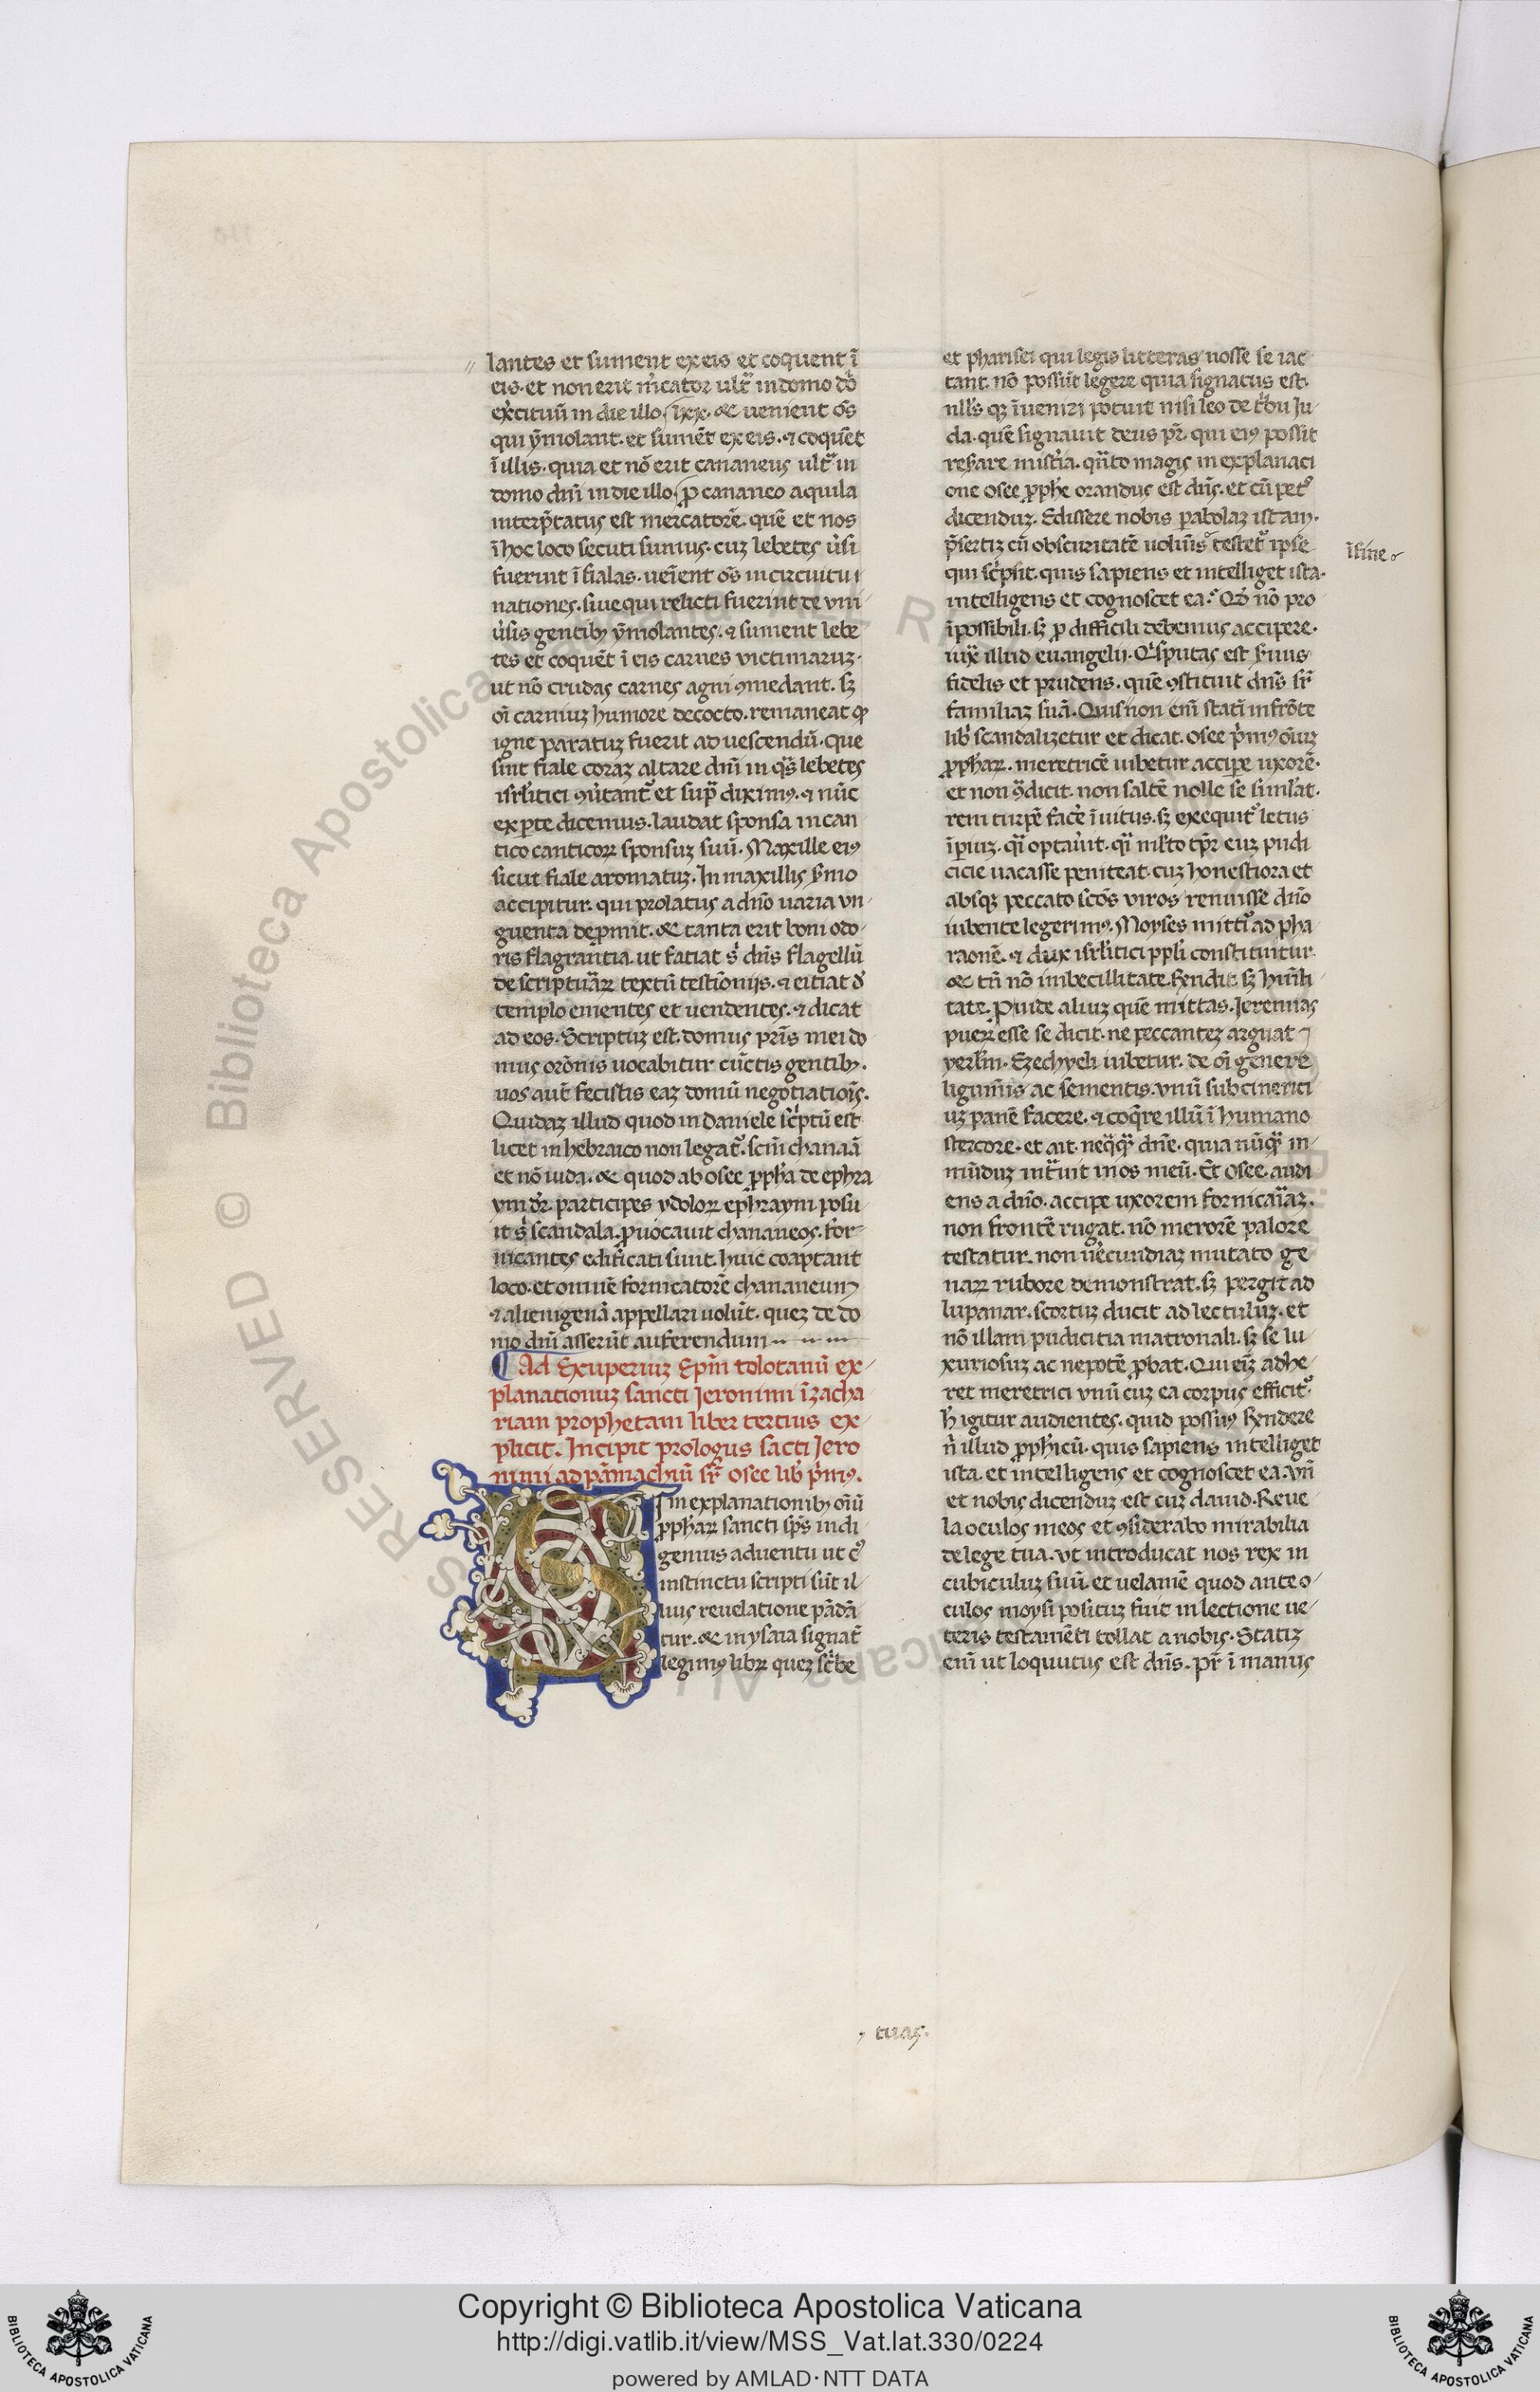 lantes et sument ex eis et coquent ī
eis · et non erit m̃cator ult̃ in domo dñ
ex̃cituũ in die illo · lxx · & uenient oẽs
qui ỹmolant · et sumẽt ex eis · ⁊ coquẽt
ī illis · quia et nõ erit cananeus ult̃ in
domo dñi in die illo · ꝓ cananeo aquila
interp̃tatus est mercatorẽ · quẽ et nos
ī hoc loco secuti sumus · cuꝫ lebetes ũsi
fuerint ī fialas · ueĩent oẽs in circuitu
nationes · siue qui relicti fuerint de vni
ũsis gentibꝫ ỹmolantes · ⁊ sument lebe
tes et coquẽt ī eis carnes victimaruꝫ ·
ut nõ crudas carnes agni ꝯmedant · sꝫ
oĩ carniuꝫ humore decocto · remaneat qꝫ
igne paratuꝫ fuerit ad uescendũ · que
sint fiale coraꝫ altare dñi in q̃s lebetes
isr̃litici ꝯũtant᷑ et sup̃ diximꝰ · ⁊ nũc
ex ꝑte dicemus · laudat sponsa in can
tico canticoꝝ sponsuꝫ suũ · Maxille eiꝰ
sicut fiale aromatuꝫ · In maxillis s̃mo
accipitur · qui prolatus a dño uaria vn
guenta deꝓmit · & tanta erit boni odo
ris flagrãntia · ut faciat s̃ dñs flagellũ
de scriptuãꝝ textũ testĩoniis · ⁊ eitiat d̃
templo ementes et uendentes · ⁊ dicat
ad eos · Scriptuꝫ est · domus pr̃is mei do
mus orõnis uocabitur cũctis gentibꝫ ·
uos aut̃ fecistis eaꝫ domũ negotiatiõis ·
Quidaꝫ illud quod in Daniele sc̃ptũ est
licet in hebraico non legat᷑ · scm̃ chanaã
et nõ iuda · & quod ab osee ꝓpha de ephra
ym dr̃ · participes ydoloꝝ ephraym posu
it s̃ scandala · ꝓuocauit chananeos · for
nicantes edificati sunt · huic coaptant
loco · et omnẽ fornicatorẽ chananeum
⁊ alienigenã appellari uolũt · queꝫ de do
mo dñi asserũt auferendum
¶ Ad Exuperiuꝫ Epm̃ tolotanũ ex
planationuꝫ sancti Jeronimi ĩ zacha
riam prophetam liber tertius ex
plicit · Incipit prologus sãcti Jero
nimi ad pãmachiũ sr̃ osee lib̃ p̃mꝰ ·
SI in explanationibꝫ oĩũ
ꝓphaꝝ sancti sp̃s indi
gemus aduentu ut cꝰ
instinctu scripti sũt il
lius reuelatione pãdã
tur · & in ysaia signat̃
legimꝰ libꝝ queꝫ sc̃be
et pharisei qui legis litteras nosse se iac
tant · nõ possũt legere quia signatus est ·
nll̃s qꝫ ĩueniri potuit nisi leo de t̃bu Ju
da · quẽ signauit deus pr̃ · qui eiꝰ possit
res̃are mist̃ia · q̃nto magis in explanaci
one osee ꝓphe orandus est dñs · et cũ pet᷑
dicenduꝫ · Edissere nobis ꝑabolaꝫ istam ·
p̃sertiꝫ cũ obscuritatẽ uolũis testet᷑ ipse
ī fine
qui sc̃psit · quis sapiens et intelliget ista ·
intelligens et cognoscet ea · Qð nõ pro
ĩpossibili · sꝫ ꝓ difficili debemus accipere ·
iux̃ illud euangelii · Q̃s putas est s̃uus
fidelis et prudens · quẽ ꝯstituit dñs sr̃
familiaꝫ suã · Quis non eñi statĩ in frõte
lib̃ scandalizetur et dicat · Osee p̃mꝰ oĩuꝫ
ꝓphaꝝ · meretricẽ iubetur acciꝑe uxorẽ ·
et non ꝯ̃dicit · non saltẽ nolle se simlat ·
rem turpẽ fac̃e ĩuitus · sꝫ exequit᷑ letus
ĩperiuꝫ · q̃i optaũit · q̃i mlto tp̃r euꝫ pudi
cicie uacasse peniteat · cuꝫ honestiora et
absqꝫ peccato scõs viros renuisse dño
iubente legerimꝰ · Moyses mittit᷑ ad pha
raonẽ · ⁊ dux isr̃litici ppl̃i constituitur
& tñ nõ imbecillitate · s̃ndit sꝫ humĩli
tate · Puide aliuꝫ quẽ mittas · Jeremias
pueꝝ esse se dicit · ne peccanteꝫ arguat
yerlm̃ · Ezechyeli iubetur · de oĩ genere
ligumĩs ac sementis · vnũ subcinerici
uꝫ panẽ facere · ⁊ coq̃re illũ ĩ humano
stercore · et ait · neq̃q̃ dñe · quia nũq̃ im
mũduꝫ int̃uit in os meũ · Et Osee · audi
ens a dño · accipe uxorem fornicaĩaꝫ ·
non frontẽ rugat · nõ merorẽ palore
testatur · non ũecundiaꝫ mutato ge
naꝝ rubore demonstrat · sꝫ pergit ad
lupanar · scortuꝫ ducit ad lectuluꝫ · et
nõ illam pudicitia matronali · sꝫ se lu
xuriosuꝫ ac nepotẽ ꝓbat · Qui eĩꝫ adhe
ret meretrici vnũ cuꝫ ea corpus efficit᷑ ·
h̃ igitur audientes · quid possumꝰ r̃ndere
ñ illud ꝓpheticũ · quis sapiens intelliget
ista · et intelligens et cognoscet ea · vñ
et nobis dicenduꝫ est cuꝫ dauid · Reue
la oculos meos et ꝯsiderabo mirabilia
de lege tua · vt introducat nos rex in
cubiculuꝫ suũ · et uelamẽ quod ante o
culos moysi posituꝫ fuit in lectione ue
teris testamẽti tollat a nobis · Statiꝫ
eñi ut loquutus est dñs · pr̃ ĩ manus
tuas ·
Copyright © Biblioteca Apostolica Vaticana
http://digi.vatlib.it/view/MSS_Vat.lat.330/0224
powered by AMLAD·NTT DATA
BIBLIOTECA APOSTOLICA VATICANA
BIBLIOTECA APOSTOLICA VATICANA